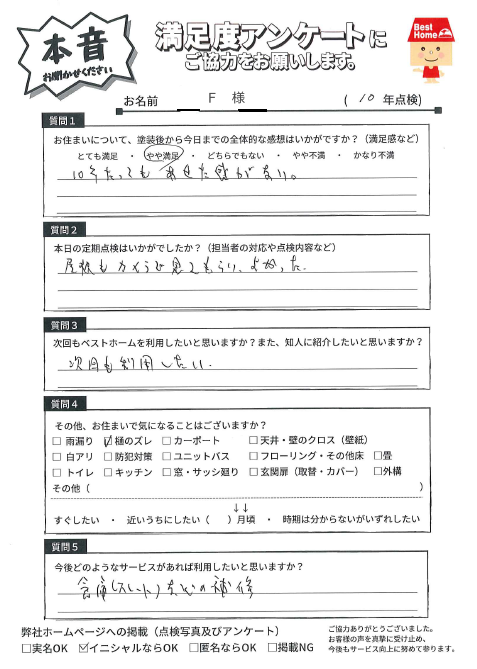 本音
お聞かせください
満足度アンケートに
ご協力をお願いします。
Best Home
お名前 F 様 (10年点検)
質問1
お住まいについて、塗装後から今日までの全体的な感想はいかがですか?(満足感など)
とても満足 ・ やや満足 ・ どちらでもない ・ やや不満 ・ かなり不満
10年たっても あせた感がない。
質問2
本日の定期点検はいかがでしたか?(担当者の対応や点検内容など)
屋根もカメラで見てもらい、よかった.
質問3
次回もベストホームを利用したいと思いますか?また、知人に紹介したいと思いますか?
次回も利用したい.
質問4
その他、お住まいで気になることはございますか?
□ 雨漏り ☑ 樋のズレ □ カーポート □ 天井・壁のクロス(壁紙)
□ 白アリ □ 防犯対策 □ ユニットバス □ フローリング・その他床 □畳
□ トイレ □ キッチン □ 窓・サッシ廻り □ 玄関扉(取替・カバー) □外構
その他( )
↓↓
すぐしたい ・ 近いうちにしたい( )月頃 ・ 時期は分からないがいずれしたい
質問5
今後どのようなサービスがあれば利用したいと思いますか?
倉庫(スレート)などの補修
弊社ホームページへの掲載(点検写真及びアンケート)
□実名OK ☑イニシャルならOK □匿名ならOK □掲載NG
ご協力ありがとうございました。
お客様の声を真摯に受け止め、
今後もサービス向上に努めて参ります。